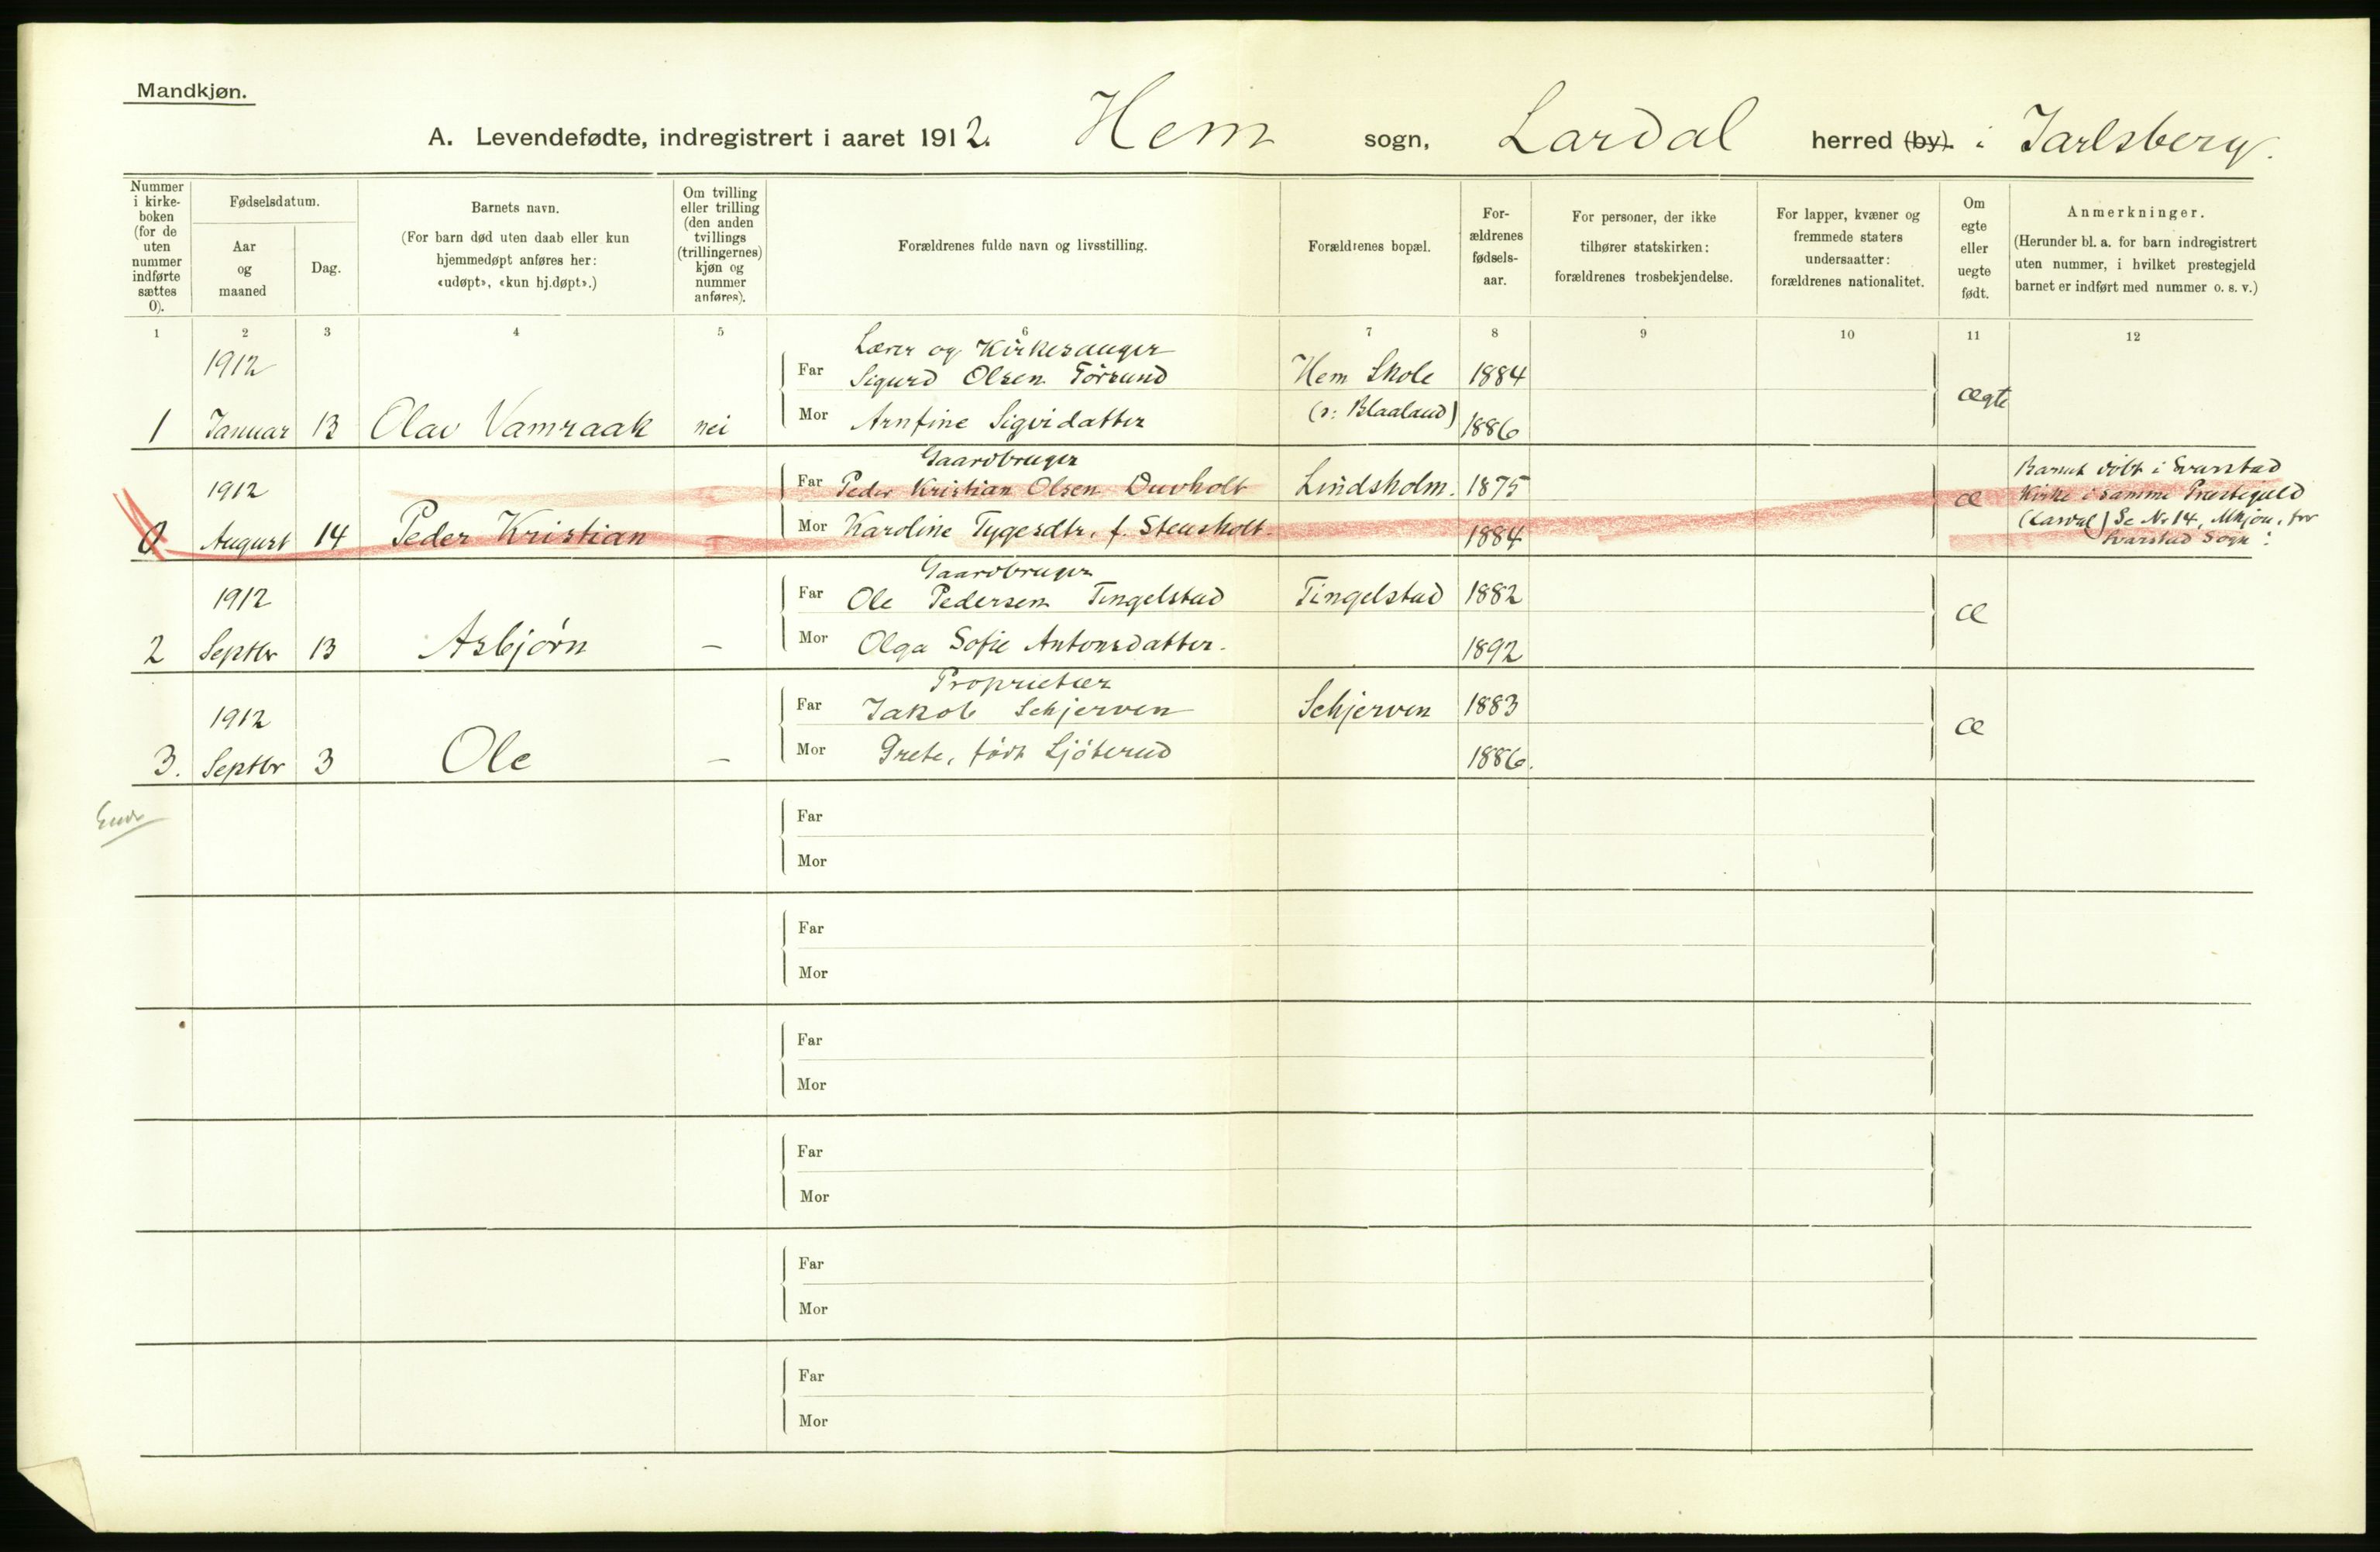 Mandkjøn.
A. Levendefødte, indregistrert i aaret 1912. Hem sogn, Lardal herred (by). i Jarlsberg.
Nummer i kirke- boken (for de uten nummer indførte sættes 0).
Fødselsdatum.
Aar og maaned
Dag.
Barnets navn.
(For barn død uten daab eller kun hjemmedøpt anføres her: «udøpt», «kun hj.døpt».)
Om tvilling eller trilling (den anden tvillings (trillingernes) kjøn og nummer anføres).
Forældrenes fulde navn og livsstilling.
Forældrenes bopæl.
For- ældrenes fødsels- aar.
For personer, der ikke tilhører statskirken: forældrenes trosbekjendelse.
For lapper, kvæner og fremmede staters undersaatter: forældrenes nationalitet.
Om egte eller uegte født.
Anmerkninger.
(Herunder bl. a. for barn indregistrert uten nummer, i hvilket prestegjeld barnet er indført med nummer o. s. v.)
1 2 3 4 5 6 7 8 9 10 11 12
Lærer og Kirkesanger
1912 Far Sigurd Olsen Törsund Hem Skole 1884 ægte
1 Januar 13 Olav Vamraak nei Mor Arnfine Sigvidatter (o: Blaaland) 1886
Gaardbruger
1912 Far Peder Kristian Olsen Duvholt Lindsholm. 1875 æ
0 August 14 Peder Kristian – Mor Karoline Tygesdtr. f. Stensholt. 1884
Barnet döbt i Svarstad
Kirke i samme Prestegjeld
(Lardal) Se No 14, Mkjøn, for
Svarstad Sogn.
Gaardbruger
1912 Far Ole Pedersen Tingelstad Tingelstad 1882 æ
2 Septbr 13 Asbjørn – Mor Olga Sofie Antonsdatter. 1892
Proprietær
1912 Far Jakob Schjerven Schjerven 1883 æ
3. Septbr 3 Ole – Mor Grete, född Sjöterud 1886.
Far
Mor
Far
Mor
Far
Mor
Far
Mor
Far
Mor
Far
Mor